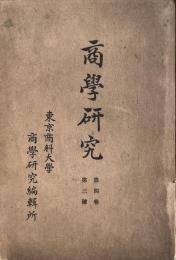 商學研究
第四卷
第三號
東京商科大學
商學研究編輯所